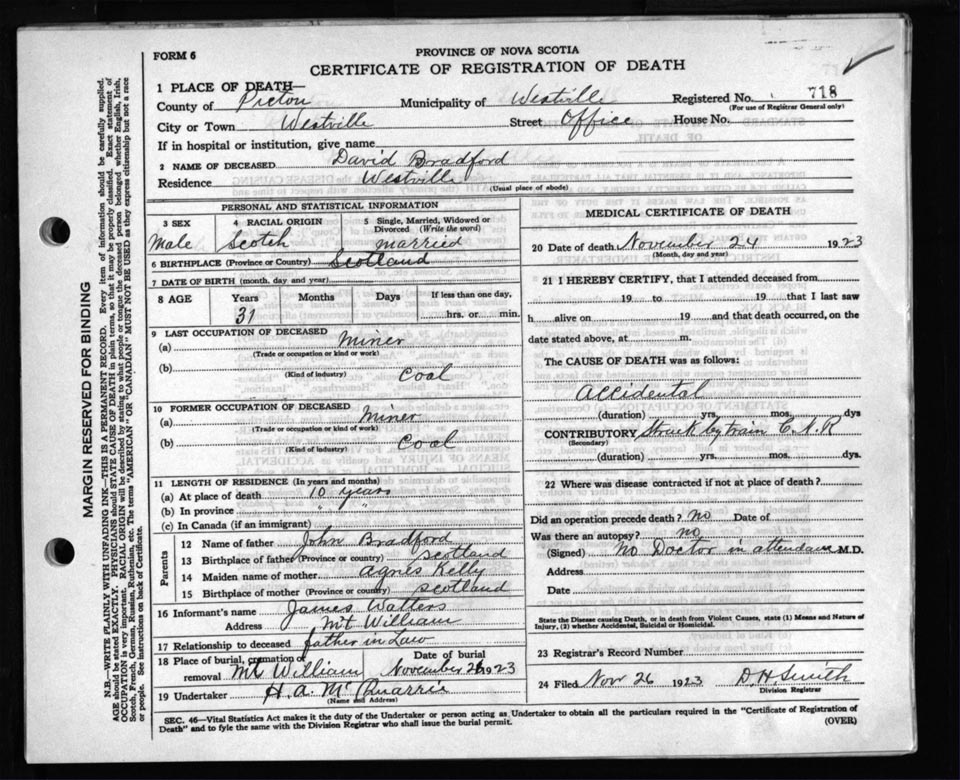 FORM 6
PROVINCE OF NOVA SCOTIA
CERTIFICATE OF REGISTRATION OF DEATH
1 PLACE OF DEATH—
County of Pictou Municipality of Westville Registered No. 718
(For use of Registrar General only)
City or Town Westville Street Office House No.
If in hospital or institution, give name
2 NAME OF DECEASED David Bradford
Residence Westville
(Usual place of abode)
PERSONAL AND STATISTICAL INFORMATION
3 SEX 4 RACIAL ORIGIN 5 Single, Married, Widowed or Divorced (Write the word)
Male Scotch married
6 BIRTHPLACE (Province or Country) Scotland
7 DATE OF BIRTH (month, day and year)
8 AGE Years Months Days If less than one day,
31 hrs. or min.
9 LAST OCCUPATION OF DECEASED
(a) Miner
(Trade or occupation or kind or work)
(b) Coal
(Kind of industry)
10 FORMER OCCUPATION OF DECEASED
(a) Miner
(Trade or occupation or kind or work)
(b) Coal
(Kind of industry)
11 LENGTH OF RESIDENCE (In years and months)
(a) At place of death 10 years
(b) In province " "
(c) In Canada (if an immigrant)
Parents
12 Name of father John Bradford
13 Birthplace of father (Province or country) Scotland
14 Maiden name of mother Agnes Kelly
15 Birthplace of mother (Province or country) Scotland
16 Informant's name James Walters
Address Mt William
17 Relationship to deceased father in Law
18 Place of burial, cremation or removal Mt William Date of burial November 26 1923
19 Undertaker H. A. McQuarrie
(Name and Address)
MEDICAL CERTIFICATE OF DEATH
20 Date of death November 24 1923
(Month, day and year)
21 I HEREBY CERTIFY, that I attended deceased from
19 to 19 that I last saw
h alive on 19 and that death occurred, on the
date stated above, at m.
The CAUSE OF DEATH was as follows:
Accidental
(duration) yrs. mos. dys
CONTRIBUTORY Struck by train C.N.R
(Secondary)
(duration) yrs. mos. dys.
22 Where was disease contracted if not at place of death?
Did an operation precede death? no Date of
Was there an autopsy? no
(Signed) No Doctor in attendance M.D.
Address
Date
State the Disease causing Death, or in death from Violent Causes, state (1) Means and Nature of
Injury, (2) whether Accidental, Suicidal or Homicidal.
23 Registrar's Record Number
24 Filed Nov 26 1923 D. H. Smith
Division Registrar
SEC. 46—Vital Statistics Act makes it the duty of the Undertaker or person acting as Undertaker to obtain all the particulars required in the "Certificate of Registration of
Death" and to fyle the same with the Division Registrar who shall issue the burial permit. (OVER)
MARGIN RESERVED FOR BINDING
N.B.—WRITE PLAINLY WITH UNFADING INK—THIS IS A PERMANENT RECORD. Every item of information should be carefully supplied.
AGE should be stated EXACTLY. PHYSICIANS should STATE CAUSE OF DEATH in plain terms, so that it may be properly classified. Exact statement of
OCCUPATION is very important. RACIAL ORIGIN will be described by stating to what people or tongue the deceased person belonged whether English, Irish,
Scotch, French, German, Russian, Ruthenian, etc. The terms "AMERICAN" OR "CANADIAN" MUST NOT BE USED as they express citizenship but not a race
or people. See instructions on back of Certificate.